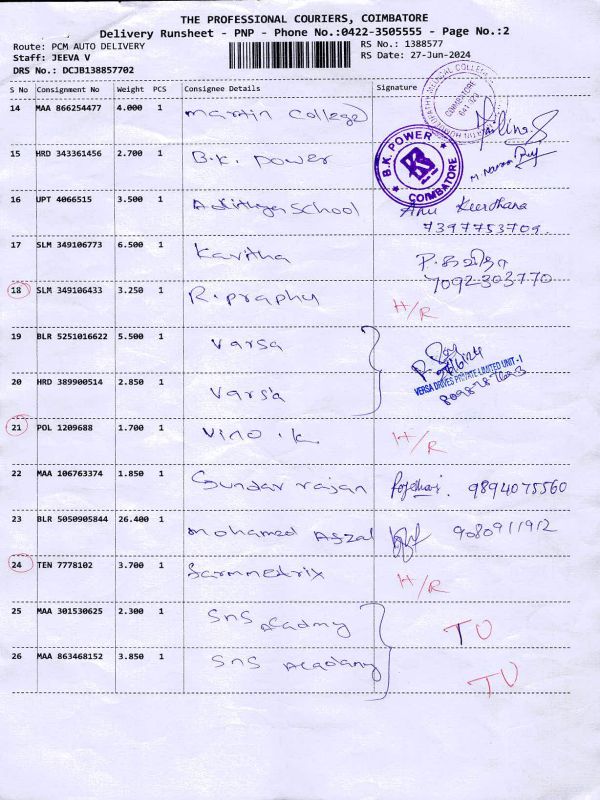 THE PROFESSIONAL COURIERS, COIMBATORE
Delivery Runsheet - PNP - Phone No.:0422-3505555 - Page No.:2
Route: PCM AUTO DELIVERY RS No.: 1388577
Staff: JEEVA V RS Date: 27-Jun-2024
DRS No.: DCJB138857702
S No Consignment No Weight PCS Consignee Details Signature
14 MAA 866254477 4.000 1 martin College
COIMBATORE
15 HRD 343361456 2.700 1 B.K. power
B.K. POWER
COIMBATORE
16 UPT 4066515 3.500 1 Adithya School Anu Keerdhana
7397753709.
17 SLM 349106773 6.500 1 Kavitha
7092303770
18 SLM 349106433 3.250 1 R. praphu H/R
19 BLR 5251016622 5.500 1 Varsa
VERSA DRIVES PRIVATE LIMITED UNIT-I
20 HRD 389900514 2.850 1 Varsa
21 POL 1209688 1.700 1 Vino .K. H/R
22 MAA 106763374 1.850 1 Sundar rajan 9894075560
23 BLR 5050905844 26.400 1 mohamed Afzal 9080911912
24 TEN 7778102 3.700 1 Sarmmedrix H/R
25 MAA 301530625 2.300 1 SnS Acadmy TU
26 MAA 863468152 3.850 1 SnS Acadamy TU